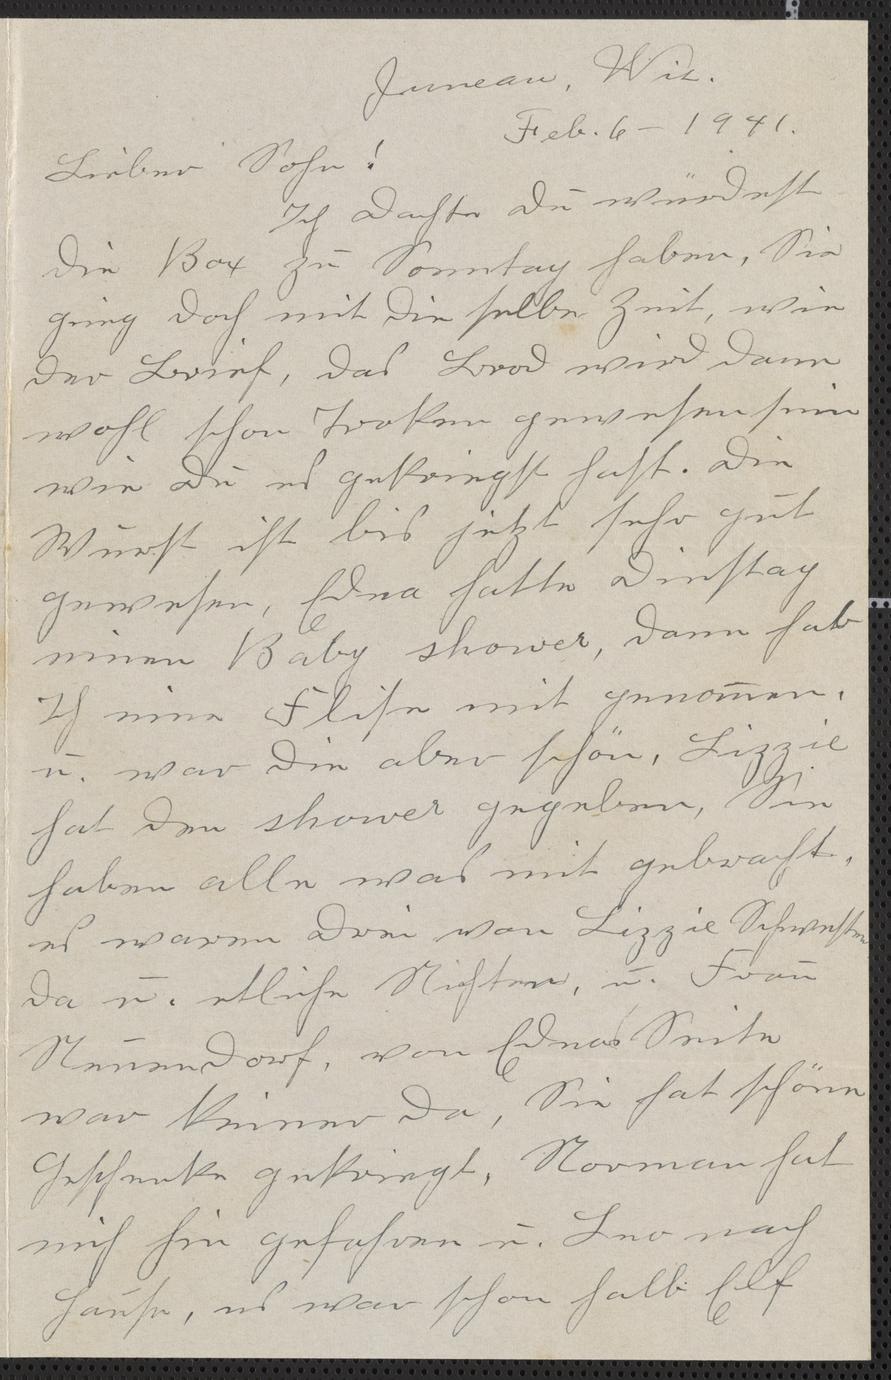 Juneau, Wis.
Feb. 6 – 1941.
Lieber Sohn!
Ich dachte du würdest
die Box zu Sonntag haben, Sie
ging doch mit die selbe Zeit, wie
der Brief, das Brod wird dann
wohl schon Troken gewesen sein
wie du es gekriegt hast. die
Wurst ist bis jetzt sehr gut
gewesen, Edna hatte Dinstag
einen Baby shower, dann hab
Ich eine Flise mit genom̄en.
u. war die aber schön, Lizzie
hat den shower gegeben, Sie
haben alle was mit gebracht.
es waren drei von Lizzie Schwestern
da u. etliche Nichten, u. Frau
Neuendorf, von Ednas Seite
war keiner da, Sie hat schöne
Geschenke gekriegt, Norman hat
mich hin gefahren u. Leo nach
hause, es war schon halb Elf